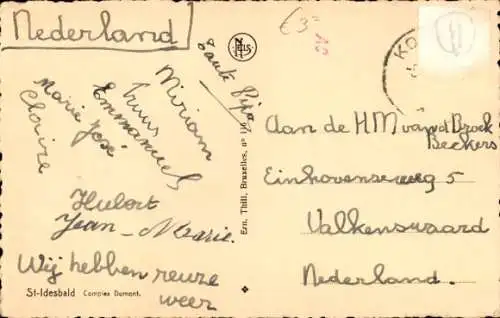 Nederland
Tante Pipa
Miriam
Truus
Emmanuel
Marie José
Claire
Hubert
Jean-Marie.
Wij hebben reuze
weer
St-Idesbald Complex Dumont.
Ern. Thill, Bruxelles, n°
NELS
KO
Aan de H M van d Broek
Beckers
Einhovenseweg 5
Valkenswaard
Nederland.